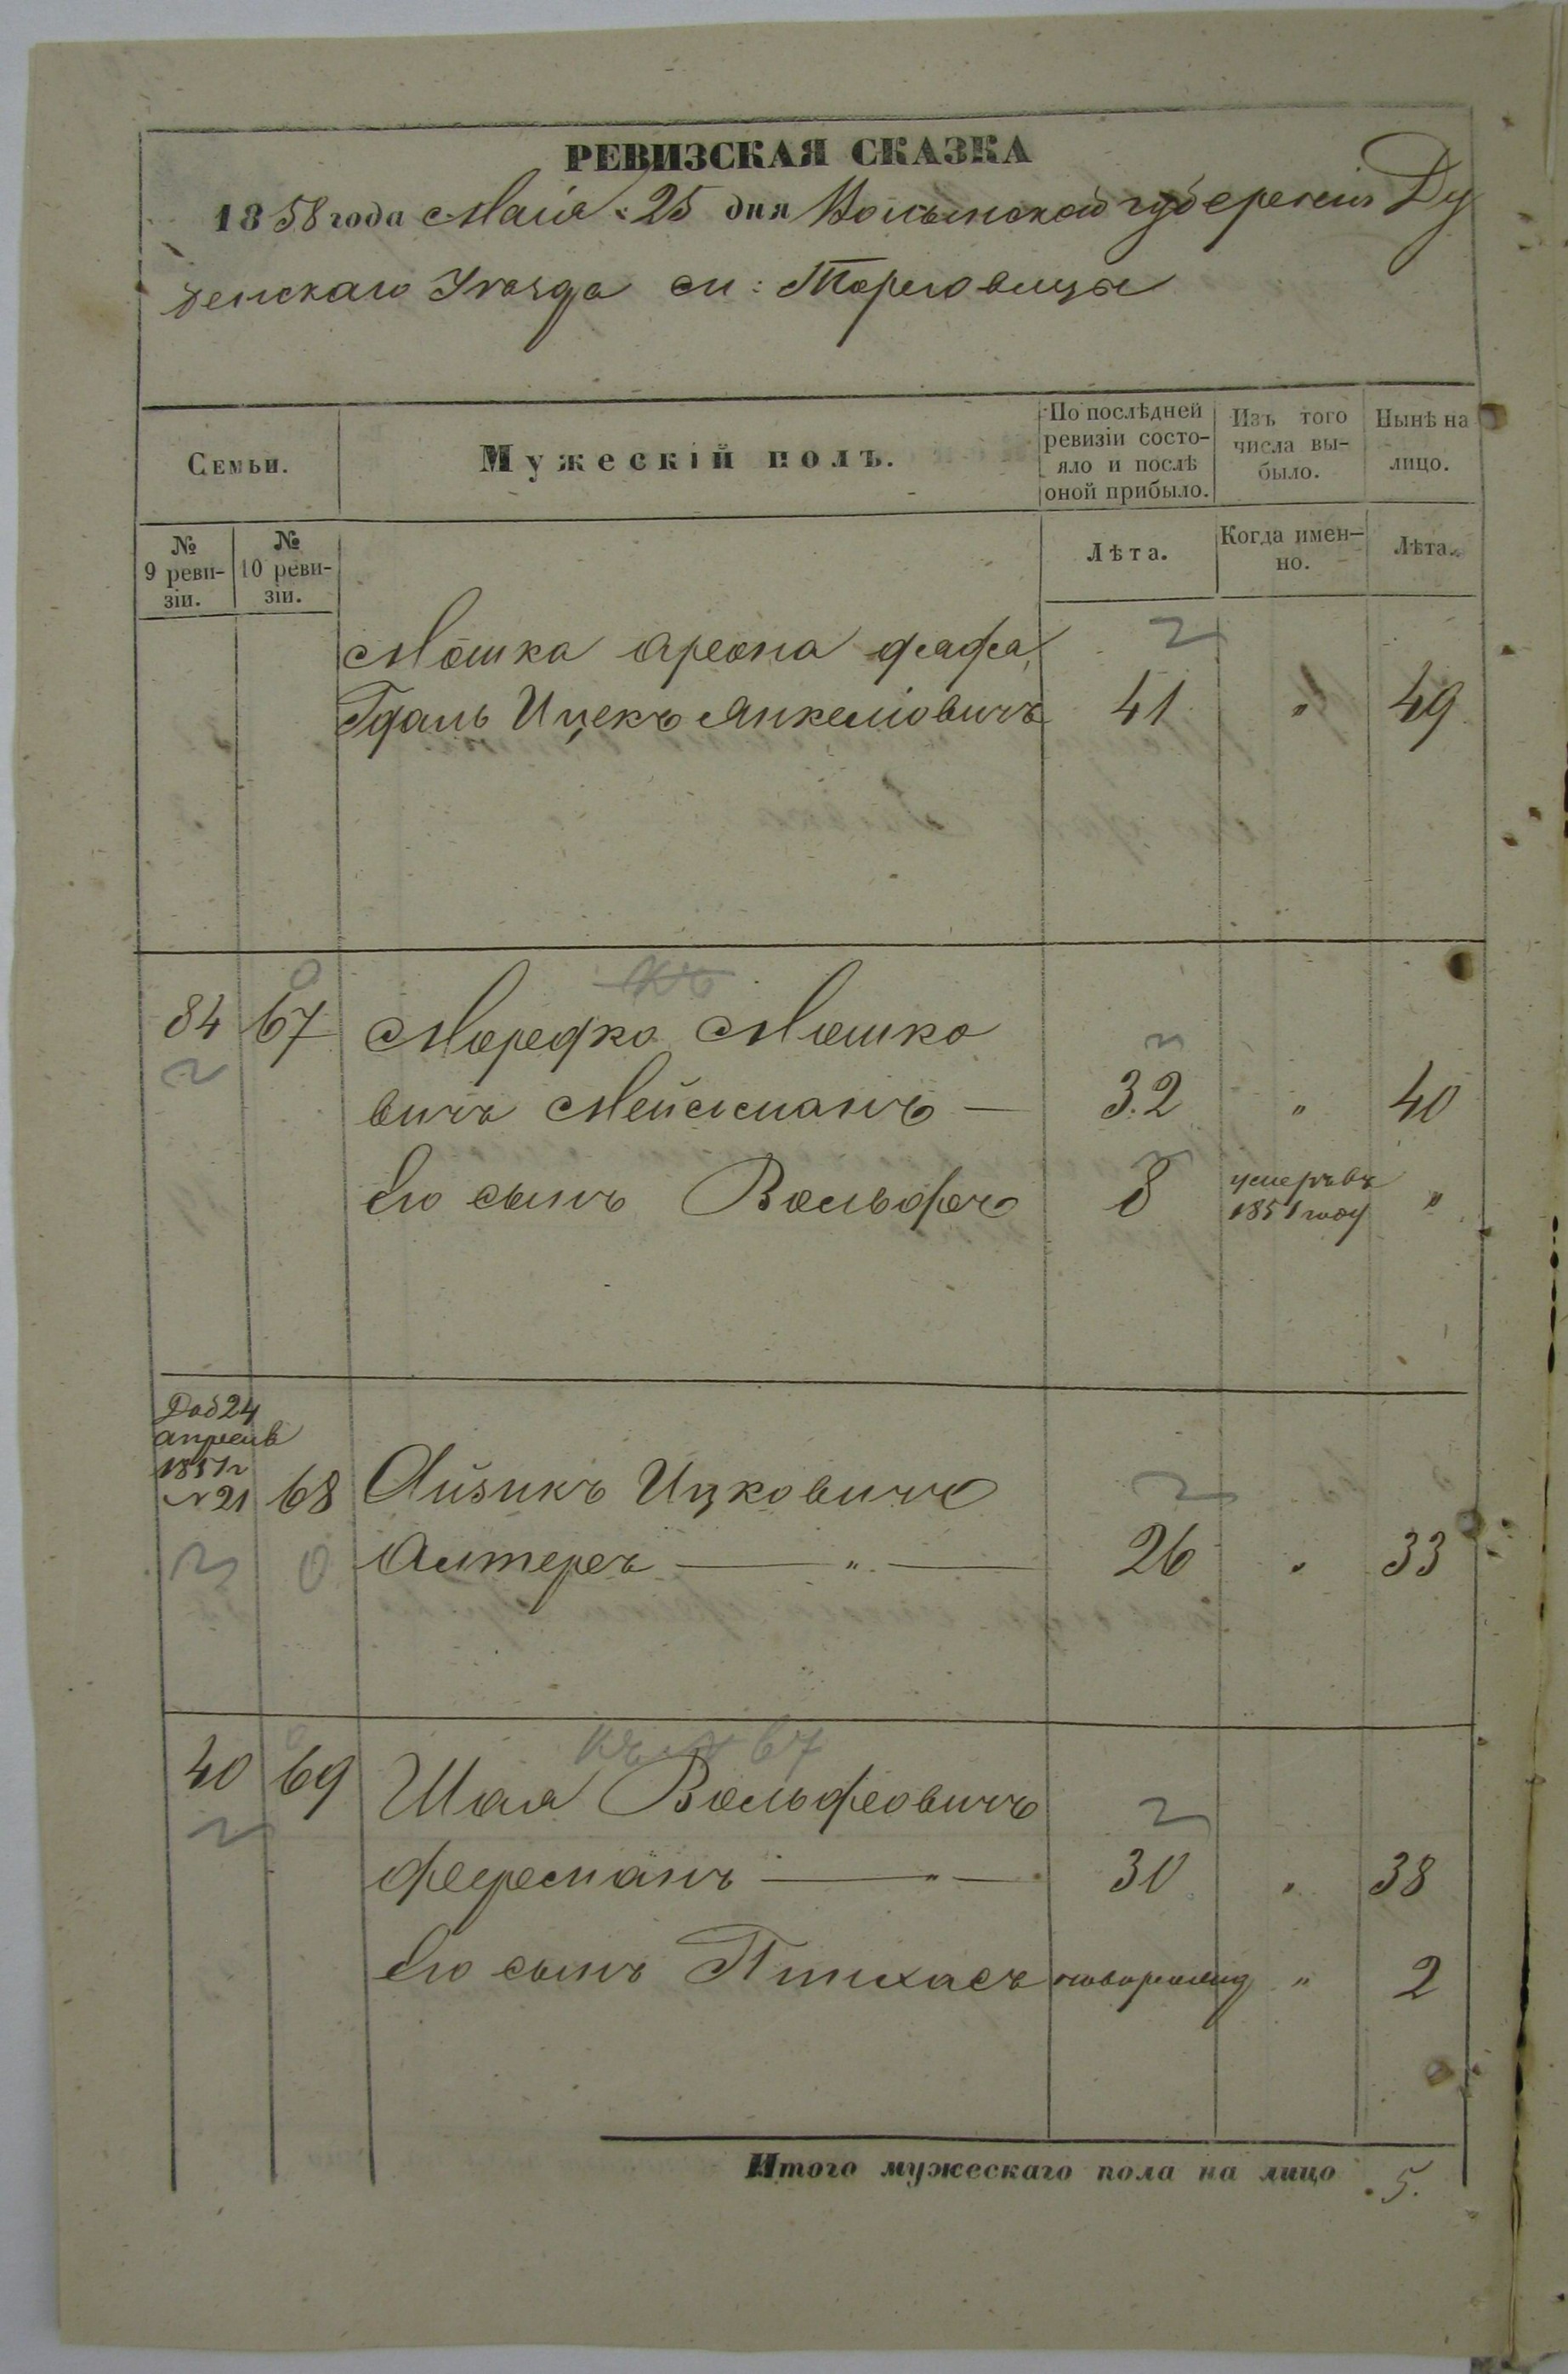 РЕВИЗСКАЯ СКАЗКА
1858 года Маія 25 дня Волынской губерніи Ду
бенскаго Уѣзда м: Торговицы
Семьи.
Мужескій полъ.
По послѣдней ревизіи состо-
яло и послѣ
оной прибыло.
Изъ того
числа вы-
было.
Нынѣ на
лицо.
№
9 реви-
зіи.
№
10 реви-
зіи.
Лѣта.
Когда имен-
но.
Лѣта.
Мошка Арона
Гдаль Ицекъ Янкеліовичъ 41 " 49
84 67 Мордко Мошко
вичъ Мейсманъ — 32 " 40
Его сынъ Вольфъ 8 умеръ въ 1851 году "
Доб 24
апрель
1851 г
№ 21 68 Айзикъ Ицковичъ
Алтеръ — " — 26 " 33
къ № 67
40 69 Шая Вольфовичъ
Ферманъ — " — 30 " 38
Его сынъ Пинхасъ новорожд " 2
Итого мужескаго пола на лицо 5.